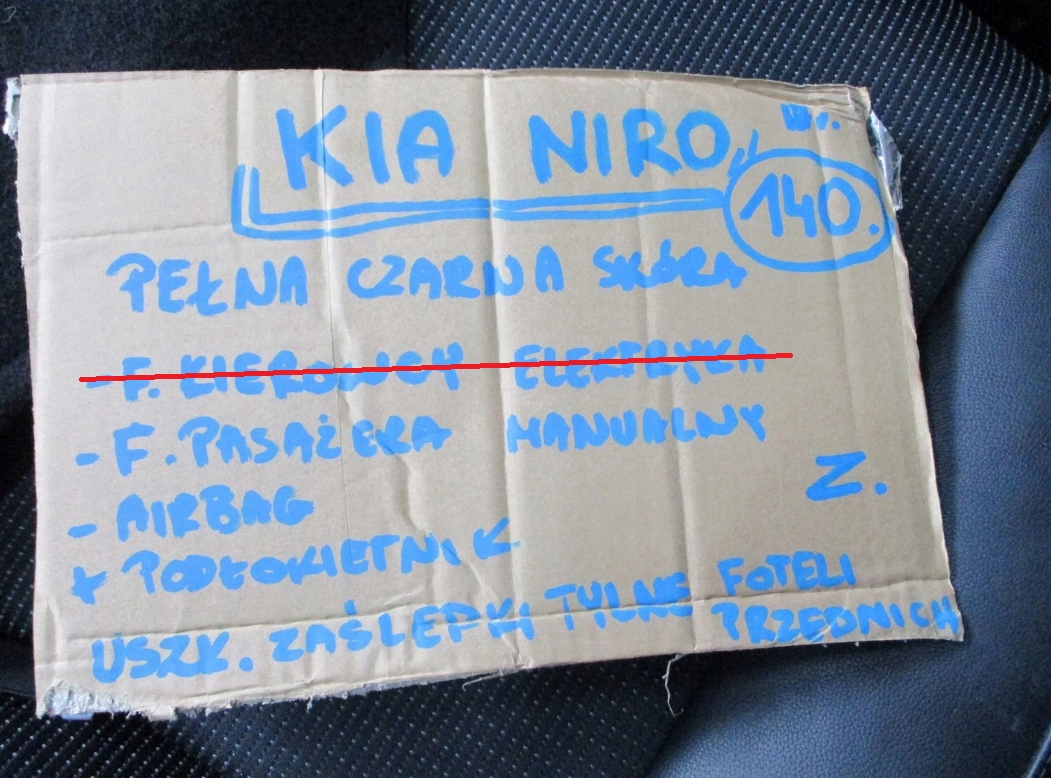 KIA NIRO
140.
PEŁNA CZARNA SKÓRA
- F. KIEROWCY ELEKTRYKA
- F. PASAŻERA MANUALNY
Z.
- AIRBAG
+ PODŁOKIETNIK
USZK. ZAŚLEPKI TYLNE FOTELI
PRZEDNICH